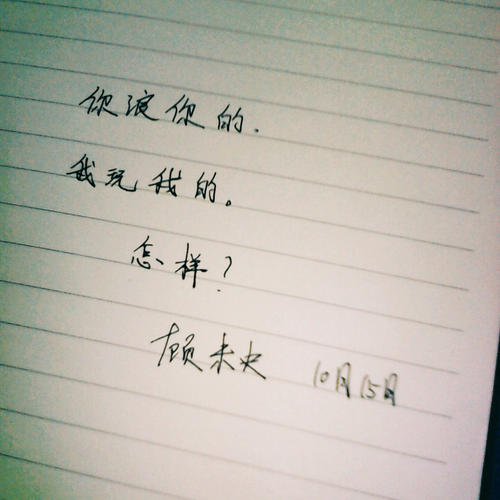 你浪你的.
我玩我的。
怎样?
顾未央 10月15月